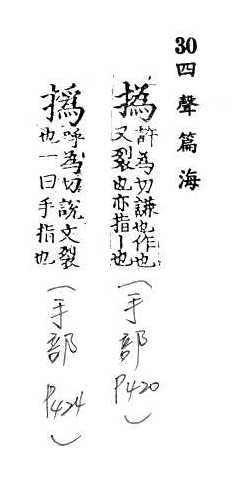 30四聲篇海
撝許為切謙也作也
又裂也亦指丨也
(手部 P420)
撝呼為切說文裂
也一曰手指也
(手部 P424)